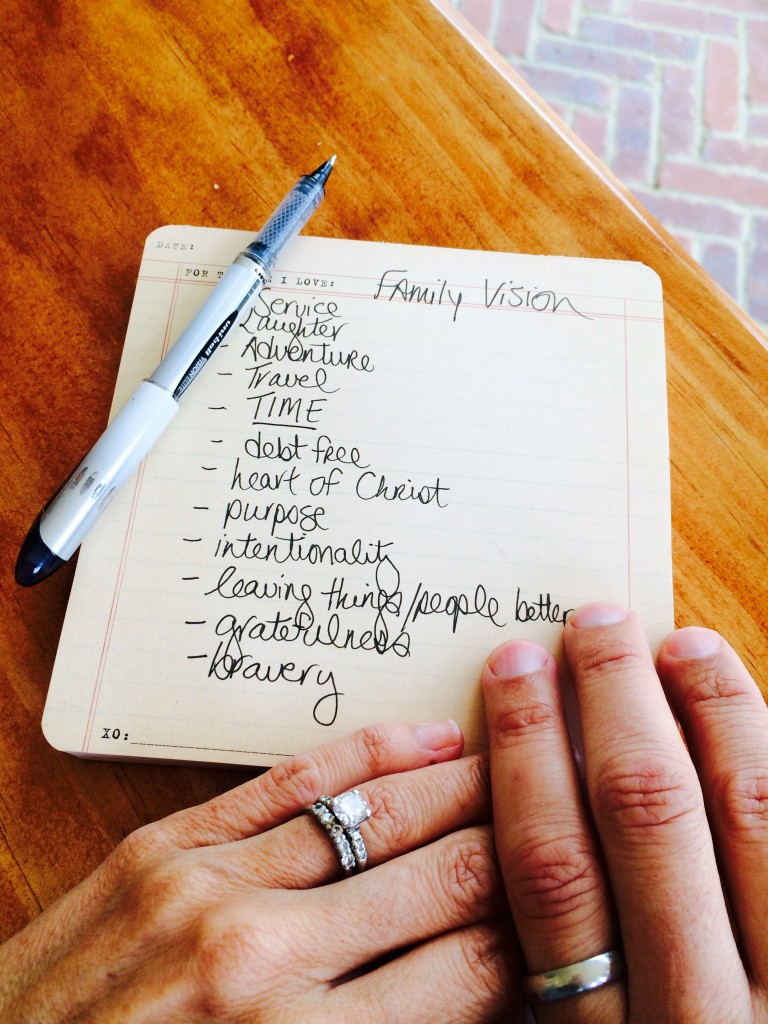 DATE:
FOR T I LOVE:
FAmily Vision
Service
Laughter
- Adventure
- Travel
- TIME
- debt free
- heart of Christ
- purpose
- intentionality
- leaving things/people better
- gratefulness
- bravery
XO:
uniball
VISION ELITE